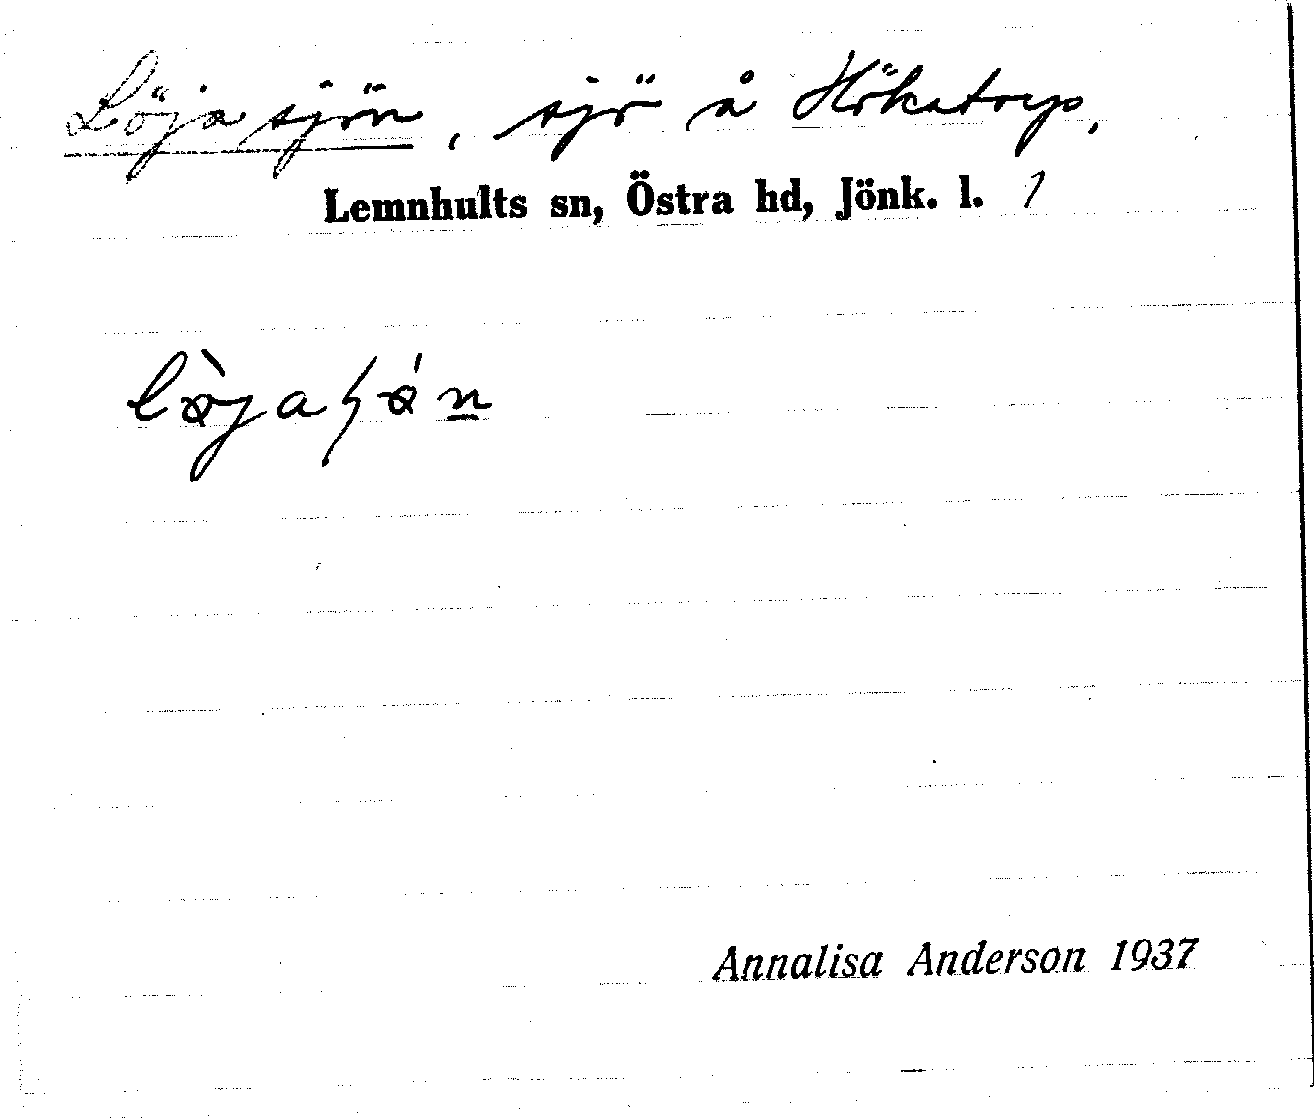 Löjasjön, sjö å Hökatorp,
Lemnhults sn, Östra hd, Jönk. l. 1
Annalisa Anderson 1937